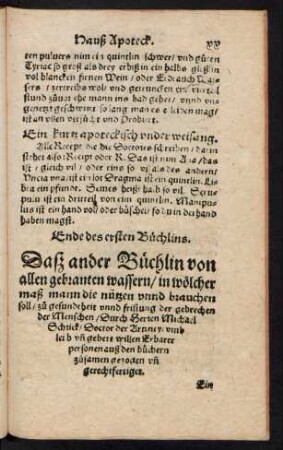 Hauß Apoteck. xx
ten puluers nim ein quintlin schwer/ vnd guten
Tyriac so groß als drey erbiß in ein halbs gleßlin
vol blancken firnen Wein/ oder
sers/ zertreibs wol/ vnd getruncken ein viertel
stund zuuor ehe mann ins bad gehet/ vnnd
genetzt geschwitzt so lang mans erleiden mag/
ist an vilen versucht vnd Probiert.
Ein kurtz apoteckisch vnderweisang.
Alle Recept die die Doctores schreiben/ darin
stehet also Recipe oder R. Das ist nim Ana/ das
ist/ gleich vil/ oder eins so vil als des andern/
Vncea was ist ein lot Dragma ist ein quintlin. Li-
bra ein pfundt. Semis heißt halb so vil. Scru-
pulus ist ein dritteil von eim quintlin. Manipu-
lus ist ein hand vol/ oder büschel so du in der hand
haben magst.
Ende des ersten Büchlins.
Daß ander Büchlin von
allen gebranten wassern/ in wölcher
maß mann die nützen vnnd brauchen
soll/ zu gesundtheit vnnd fristung der gebrechen
der Menschen/ Durch Herren Michael
Schrick/ Doctor der Artzney/ vmb
lieb vñ gebett willen Erbarer
personen auß den büchern
zůsamen gezogen vñ
gerechtfertiget.
Ein